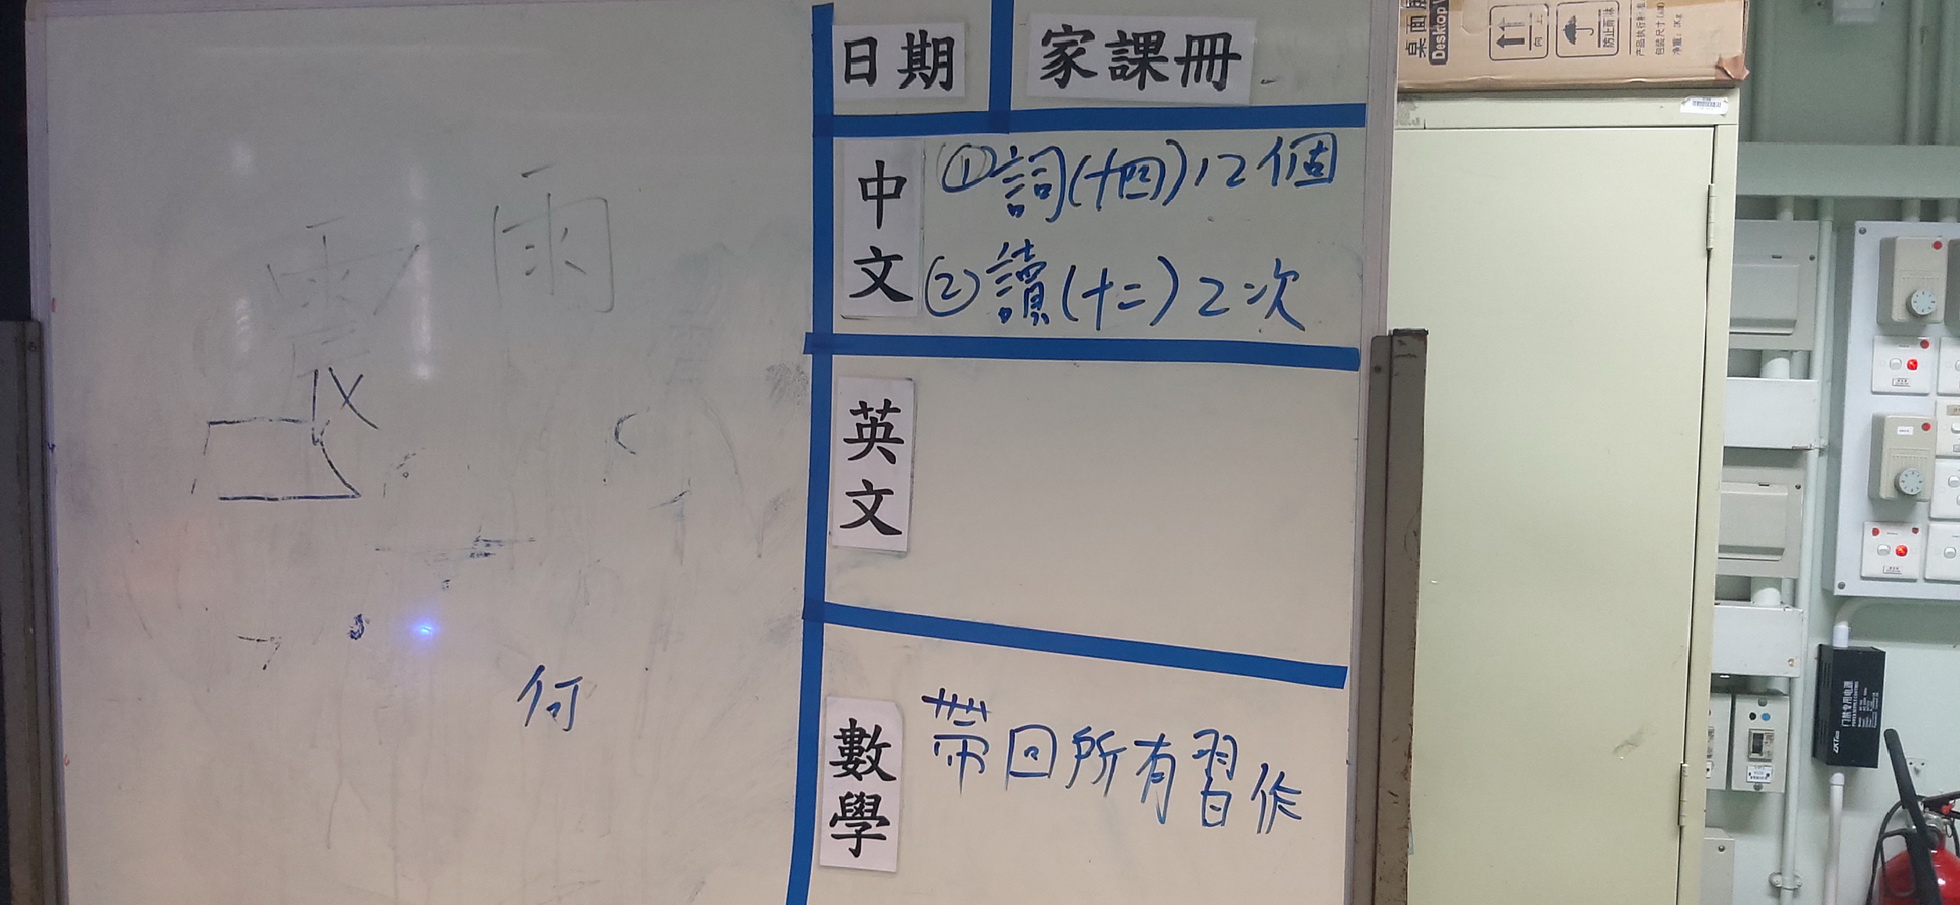 日期 家課冊
中文
①詞(十四)12個
②讀(十二)2次
英文
數學
帶回所有習作
雨
何
桌面
Desktop
向上
防止雨淋
门禁专用电源